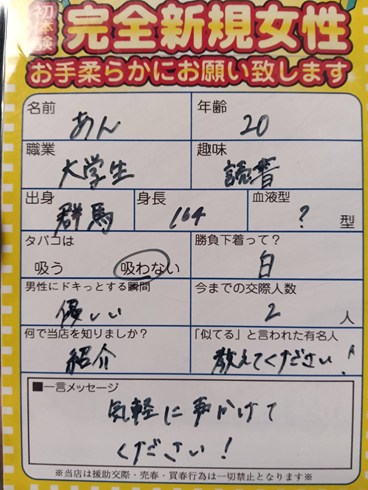 初体験
完全新規女性
お手柔らかにお願い致します
名前 あん 年齢 20
職業 大学生 趣味 読書
出身 群馬 身長 164 血液型 ? 型
タバコは 吸う 吸わない 勝負下着って? 白
男性にドキっとする瞬間 優しい 今までの交際人数 2 人
何で当店を知りましたか? 紹介 「似てる」と言われた有名人 教えてください!
■一言メッセージ
気軽に声かけて
ください!
※当店は援助交際・売春・買春行為は一切禁止となります※